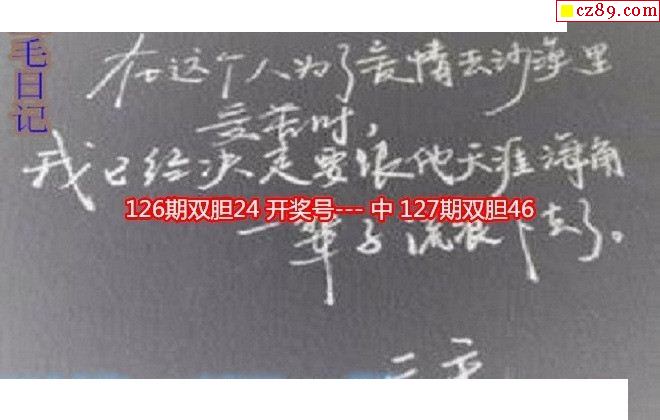 cz89.com
毛日记
在这个人为了爱情去沙漠里
受苦时，
我已经决定要跟他天涯海角
126期双胆24 开奖号--- 中 127期双胆46
一辈子流浪下去了。
三毛